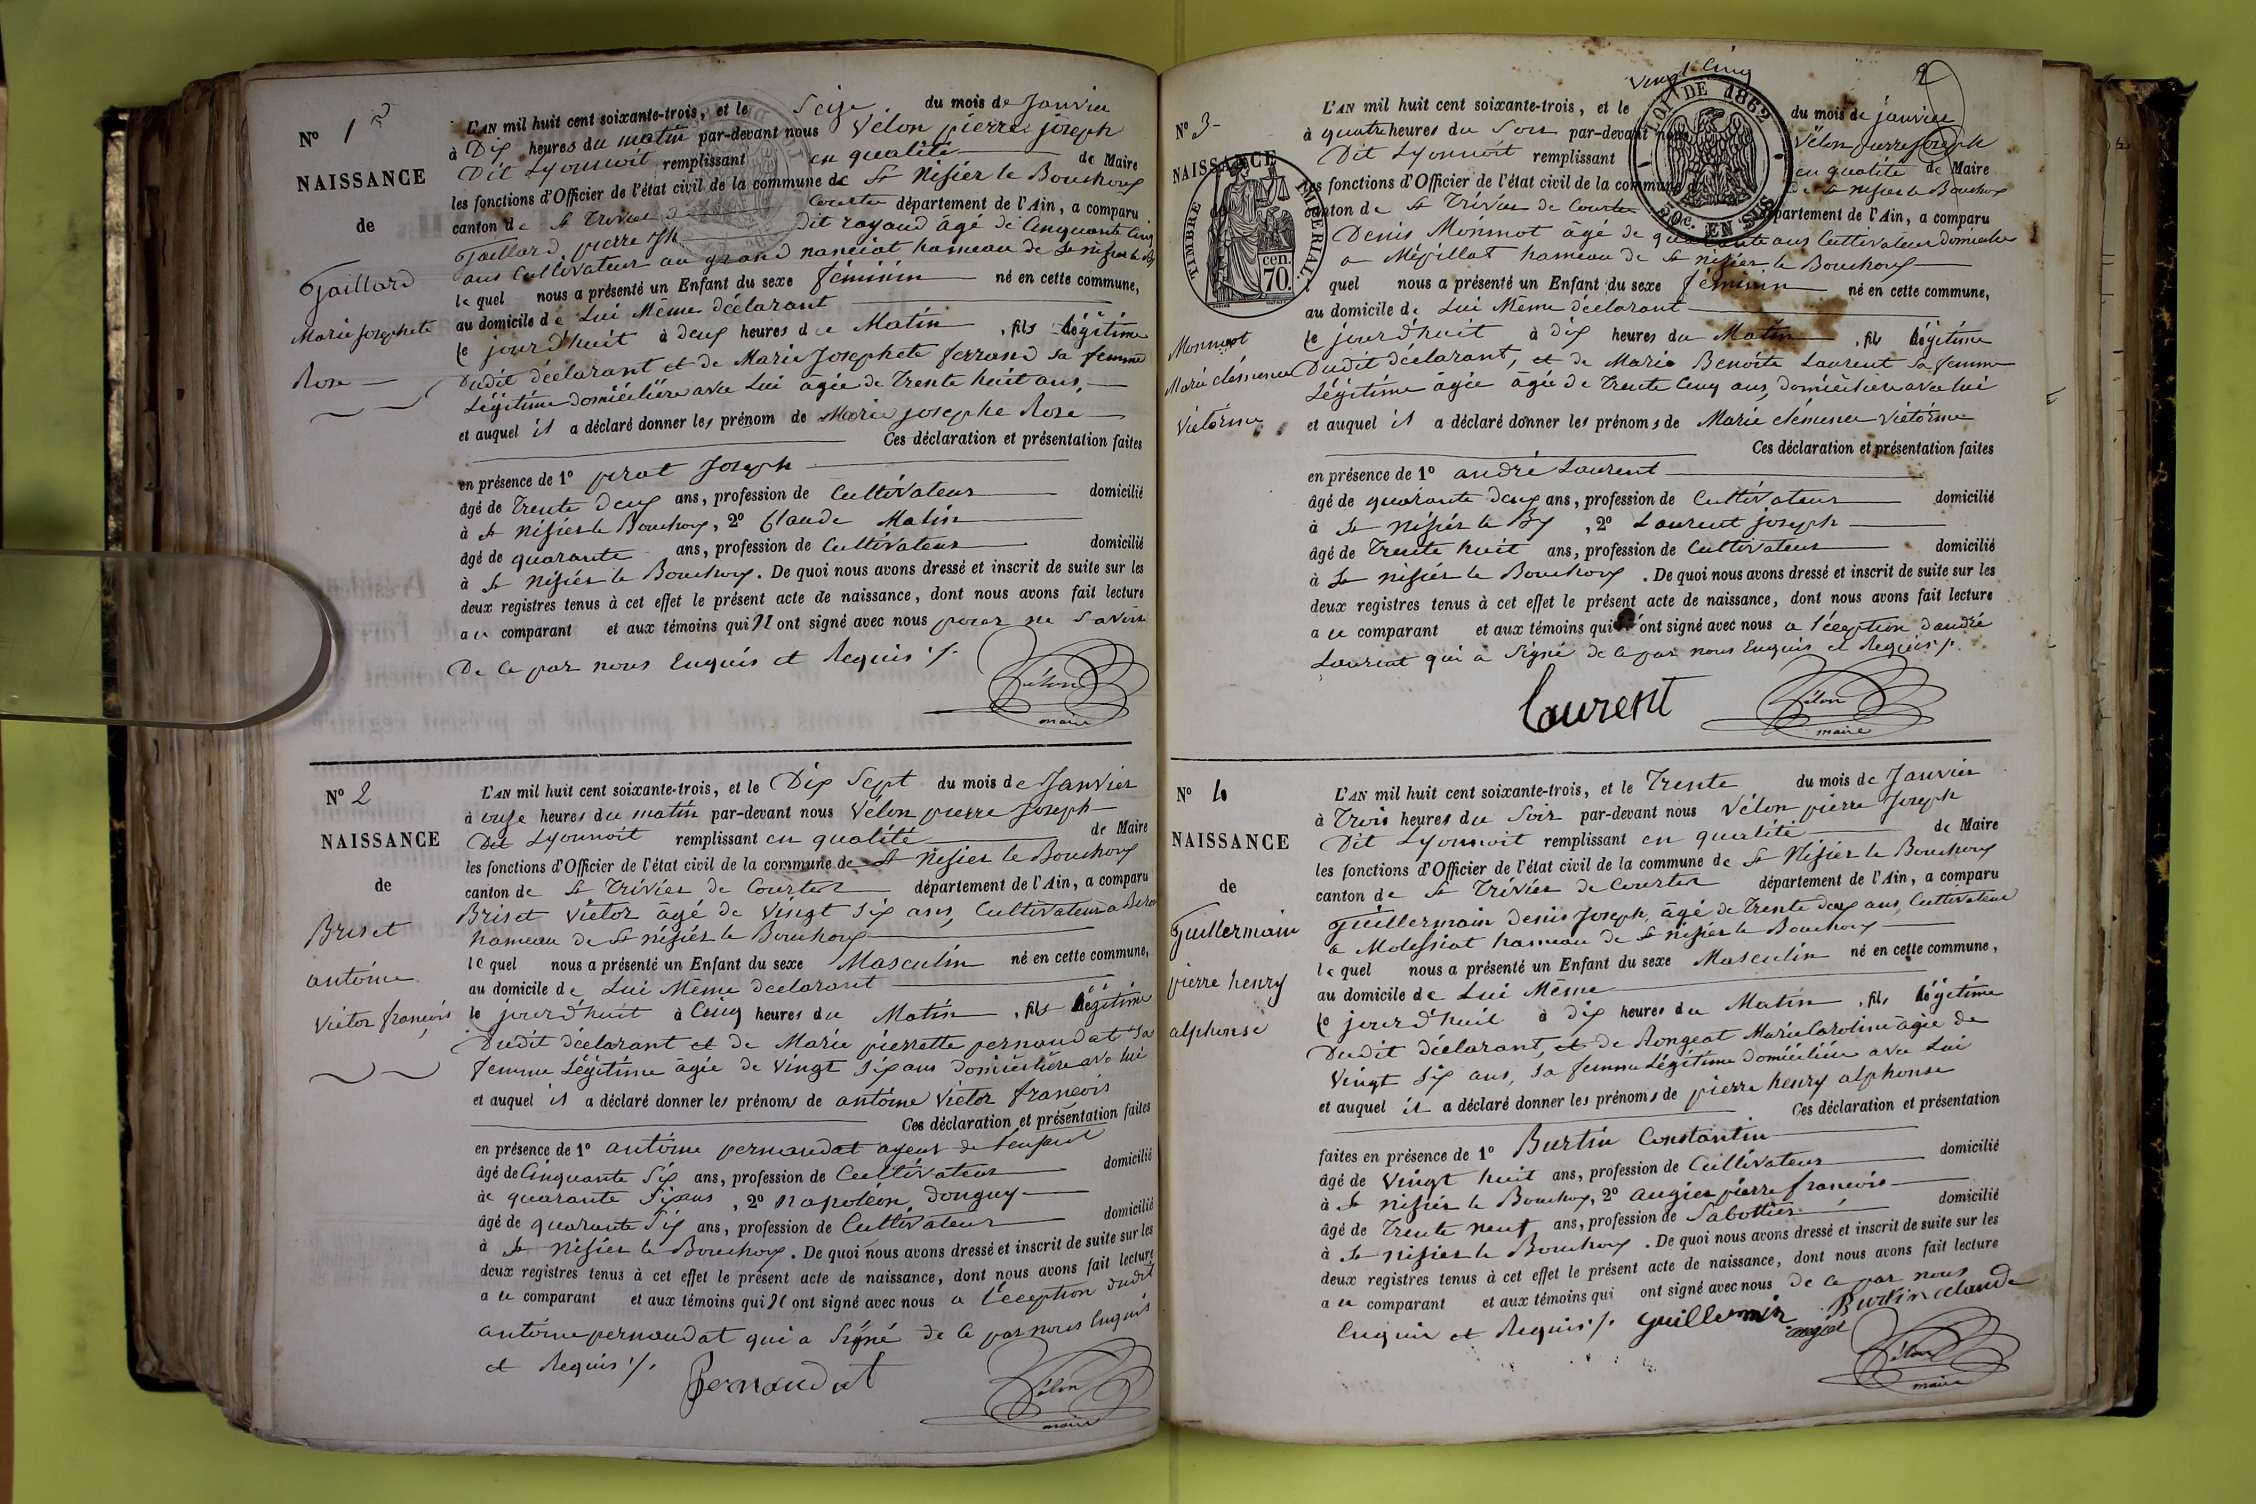 N° 1
NAISSANCE
de
Gaillard
Marie Josephete
Rose
L'AN mil huit cent soixante-trois, et le Seize du mois de Janvier
à Dix heures du matin par-devant nous Vélon pierre joseph
Dit Lyonnoit remplissant en qualité de Maire
les fonctions d'Officier de l'état civil de la commune de St Nisier le Bouchoux
canton de St Trivier de Courtes département de l'Ain, a comparu
Gaillard pierre Jh dit rayand âgé de Cinquante Cinq
ans Cultivateur au grand nanciat hameau de St nisier le By
lequel nous a présenté un Enfant du sexe féminin né en cette commune,
au domicile de Lui Même déclarant
le jourd'huit à deux heures du Matin, fils légitime
Dudit déclarant et de Marie Josephete ferrand sa femme
Légitime domicilière avec Lui âgée de Trente huit ans,
et auquel il a déclaré donner les prénom de Marie josephe Rose
Ces déclaration et présentation faites
en présence de 1° perat Joseph
âgé de Trente deux ans, profession de Cultivateur domicilié
à St Nisier le Bouchoux, 2° Claude Matin
âgé de quarante ans, profession de Cultivateur domicilié
à St Nisier le Bouchoux. De quoi nous avons dressé et inscrit de suite sur les
deux registres tenus à cet effet le présent acte de naissance, dont nous avons fait lecture
au comparant et aux témoins qui N ont signé avec nous pour ne Savoir
De ce par nous Enquis et Requis ./.
Vélon
maire
N° 2
NAISSANCE
de
Briset
antoine
Victor françois
L'AN mil huit cent soixante-trois, et le Dix Sept du mois de Janvier
à onze heures du matin par-devant nous Vélon pierre Joseph
Dit Lyonnoit remplissant en qualité de Maire
les fonctions d'Officier de l'état civil de la commune de St Nisier le Bouchoux
canton de St Trivier de Courtes département de l'Ain, a comparu
Briset Victor âgé de Vingt Six ans, Cultivateur a
hameau de St nisier le Bouchoux
lequel nous a présenté un Enfant du sexe Masculin né en cette commune,
au domicile de Lui Même déclarant
le jourd'huit à Cinq heures du Matin, fils légitime
Dudit déclarant et de Marie pierrette pernaudat Sa
femme Légitime âgée de Vingt Six ans domicilière avec lui
et auquel il a déclaré donner les prénoms de antoine Victor françois
Ces déclaration et présentation faites
en présence de 1° antoine pernaudat ayeux de l'enfant
âgé de Cinquante Six ans, profession de Cultivateur domicilié
à quarante Six ans, 2° Napoléon Donguy
âgé de quarante Six ans, profession de Cultivateur domicilié
à St Nisier le Bouchoux. De quoi nous avons dressé et inscrit de suite sur les
deux registres tenus à cet effet le présent acte de naissance, dont nous avons fait lecture
au comparant et aux témoins qui N ont signé avec nous a l'éception dudit
antoine pernaudat qui a Signé de ce par nous Enquis
et Requis ./.
Pernaudat
Vélon
maire
2
N° 3
NAISSANCE
de
Monmot
Marie clémence
Victorine
TIMBRE IMPERIAL.
70 cen.
LOI DE 1862
50c. EN SUS
Vingt Cinq
L'AN mil huit cent soixante-trois, et le du mois de janvier
à quatre heures du Soir par-devant nous Vélon pierre joseph
Dit Lyonnoit remplissant en qualité de Maire
les fonctions d'Officier de l'état civil de la commune de St nisier le Bouchoux
canton de St Trivier de Courtes département de l'Ain, a comparu
Denis Monmot âgé de quarante ans Cultivateur domicilié
a Mépillat hameau de St nisier le Bouchoux
quel nous a présenté un Enfant du sexe féminin né en cette commune,
au domicile de Lui Même déclarant
le jourd'huit à dix heures du Matin, fils légitime
Dudit déclarant, et de Marie Benoite Laurent Sa femme
Légitime âgée âgée de Trente Cinq ans, domicilière avec lui
et auquel il a déclaré donner les prénoms de Marie clémence Victorine
Ces déclaration et présentation faites
en présence de 1° andré Laurent
âgé de quarante deux ans, profession de Cultivateur domicilié
à St Nisier le By, 2° Laurent joseph
âgé de Trente huit ans, profession de Cultivateur domicilié
à St nisier le Bouchoux. De quoi nous avons dressé et inscrit de suite sur les
deux registres tenus à cet effet le présent acte de naissance, dont nous avons fait lecture
au comparant et aux témoins qui n'ont signé avec nous a l'éception d'andré
Laurent qui a Signé de ce par nous Enquis et Requis ./.
Laurent
Vélon
maire
N° 4
NAISSANCE
de
Guillermain
pierre henry
alphonse
L'AN mil huit cent soixante-trois, et le Trente du mois de Janvier
à Trois heures du Soir par-devant nous Vélon pierre Joseph
Dit Lyonnoit remplissant en qualité de Maire
les fonctions d'Officier de l'état civil de la commune de St Nisier le Bouchoux
canton de St Trivier de Courtes département de l'Ain, a comparu
Guillermain Denis Joseph, âgé de Trente deux ans, Cultivateur
a Molissiat hameau de St nisier le Bouchoux
lequel nous a présenté un Enfant du sexe Masculin né en cette commune,
au domicile de Lui Même
le jourd'huit à dix heures du Matin, fils légitime
Dudit déclarant, et de Rongeat Marie Caroline âgée de
Vingt Six ans, sa femme Légitime domicilière avec Lui
et auquel il a déclaré donner les prénoms de pierre henry alphonse
Ces déclaration et présentation
faites en présence de 1° Burtin Constantin
âgé de Vingt huit ans, profession de Cultivateur domicilié
à St Nisier le Bouchoux, 2° augier pierre françois
âgé de Trente neuf ans, profession de Sabottier domicilié
à St Nisier le Bouchoux. De quoi nous avons dressé et inscrit de suite sur les
deux registres tenus à cet effet le présent acte de naissance, dont nous avons fait lecture
au comparant et aux témoins qui ont signé avec nous de ce par nous
Enquis et Requis ./. Guillermin Burtin claude
augier
Vélon
maire